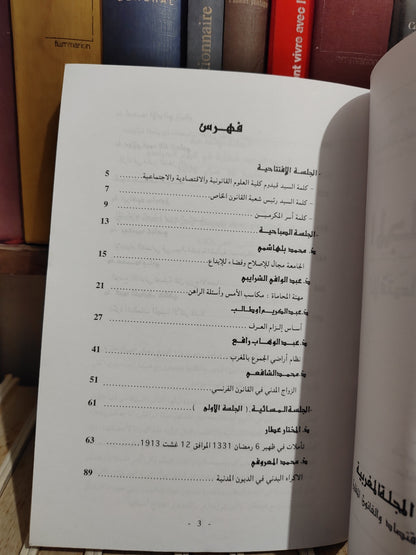 flammarion
فهرس
- الجلسة الإفتتاحية
- كلمة السيد قيدوم كلية العلوم القانونية والاقتصادية والاجتماعية 5
- كلمة السيد رئيس شعبة القانون الخاص 7
- كلمة أسر المكرمين 9
- الجلسة الصباحية 13
ذ. محمد بلهاشمي
الجامعة مجال للإصلاح وفضاء للإبداع 15
ذ. عبد الوافي الشرايبي
مهنة المحاماة : مكاسب الأمس وأسئلة الراهن 21
ذ. عبد الكريم أوطالب
أساس إلزام العرف 27
ذ. عبد الوهاب رافع
نظام أراضي الجموع بالمغرب 41
ذ. محمد الشافعي
الزواج المدني في القانون الفرنسي 51
- الجلسة المسائية ( الجلسة الأولى ) 61
ذ. المختار عطار
تأملات في ظهير 6 رمضان 1331 الموافق 12 غشت 1913 63
ذ. محمد المعروفي
الاكراه البدني في الديون المدنية 89
- 3 -
المجلة المغربية